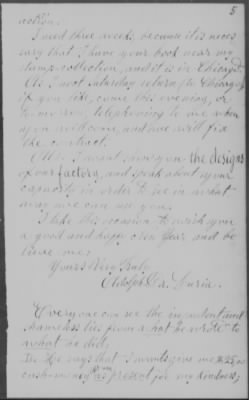 5
action.
I need three weeks, because it is neces
sary that I have your book near my
stamp-collection, and it is in Chicago.
As I next Saturday return to Chicago,
if you like, come this evening, or
to-morrow, telephoning to me when
you will come, and we will fix
the contract.
Also I want show you the designs
of our factory, and speak about your
capacity in order to see in what
way we can use you.
I take this occasion to wish you
a good and happy New Year and be
lieve me,
Yours Very Truly
Adolph D. Lurie.
Everyone can see the impudent and
shameless lies from what he wrote to
what he did.
He says that I would give me $25 as
custom from as present for my kindness,